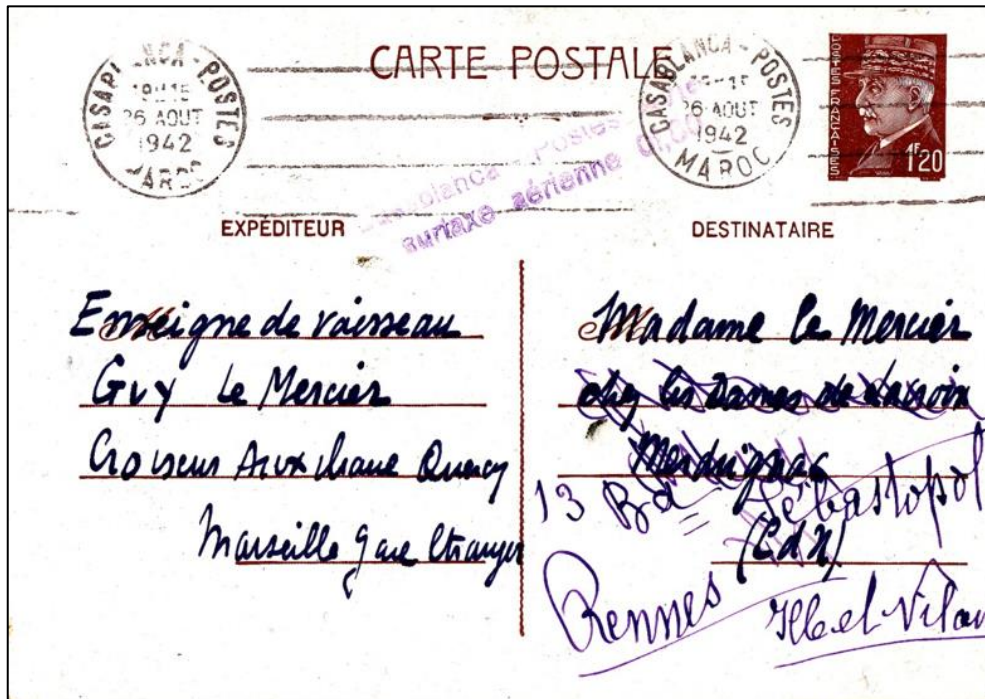 CARTE POSTALE
CASABLANCA - POSTES
19H15
26 AOUT
1942
MAROC
CASABLANCA - POSTES
26 AOUT
1942
MAROC
POSTES FRANÇAISES
1F20
Casablanca Postes
surtaxe aérienne
EXPÉDITEUR
Enseigne de vaisseau
Guy Le Mercier
Croiseur Auxiliaire Quercy
Marseille gare étranger
DESTINATAIRE
Madame le Mercier
chez les Dames de
Merdrignac
(CdN)
13 Bd Sébastopol
Rennes
Ille et Vilaine